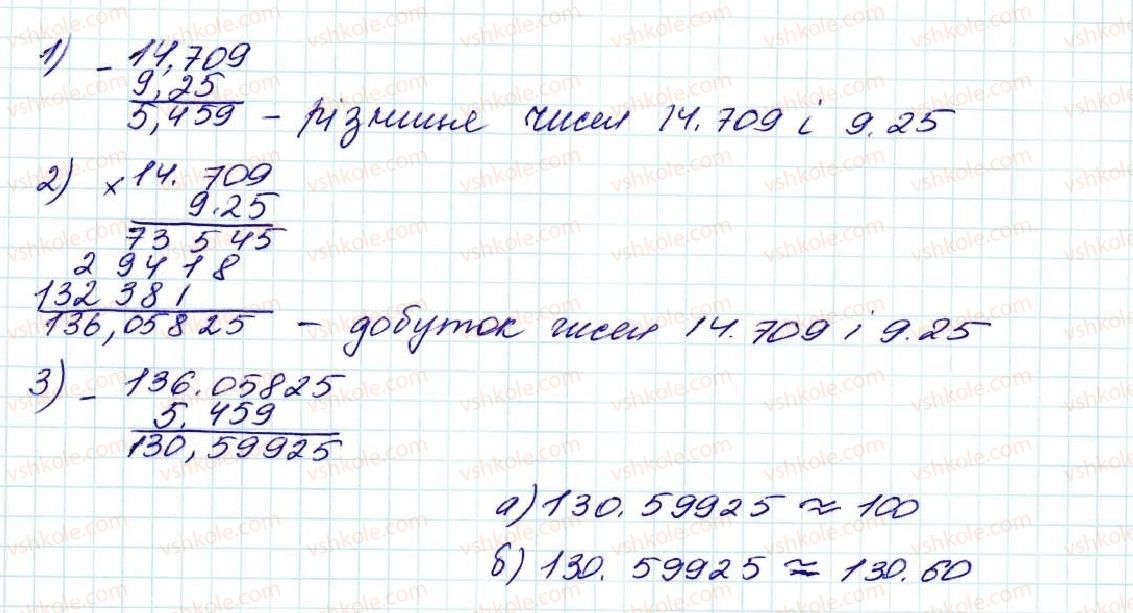 1) - 14,709
9,25
5,459 - різниця чисел 14.709 і 9.25
2) x 14.709
9.25
73 545
2 94 1 8
132 381
136,05825 - добуток чисел 14.709 і 9.25
3) - 136.05825
5.459
130,59925
а) 130.59925 ≈ 100
б) 130.59925 ≈ 130.60